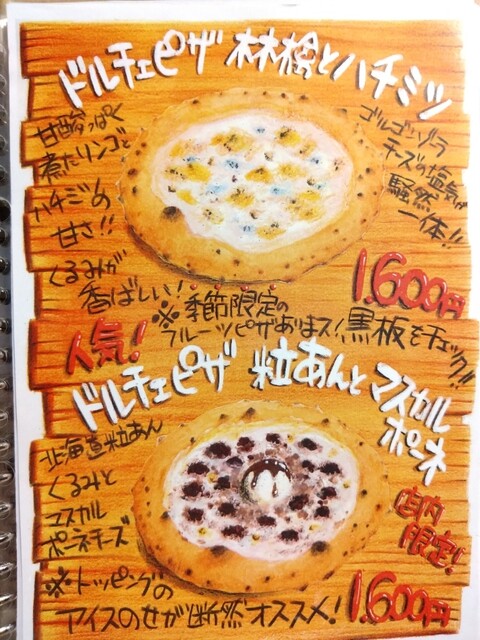 ドルチェピザ 林檎とハチミツ
甘酸っぱく
煮たリンゴと
ハチミツの
甘さ!!
くるみが
香ばしい!
ゴルゴンゾラ
チーズの塩気が
騒然
一体!!
1.600円
人気!
※季節限定の
フルーツピザあります!黒板をチェック!!
ドルチェピザ 粒あんとマスカル
ポーネ
北海道粒あん
くるみと
マスカル
ポーネチーズ
店内
限定!
※トッピングの
アイスのせが断然オススメ!
1.600円